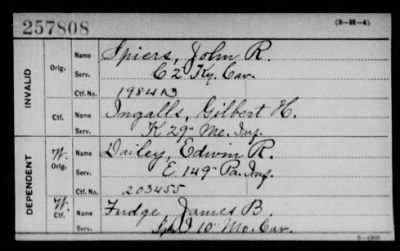 257808
(3—H—4)
INVALID
Orig. Name Spiers, John R.
Serv. C 2 Ky. Cav.
Ctf. No. 198413
Ctf. Name Ingalls, Gilbert H.
Serv. K 29" Me. Inf.
DEPENDENT
W. Orig. Name Dailey, Edwin R.
Serv. E 149" Pa. Inf.
Ctf. No. 203455
W. Ctf. Name Fudge, James B.
Serv. I 10" Mo. Cav.